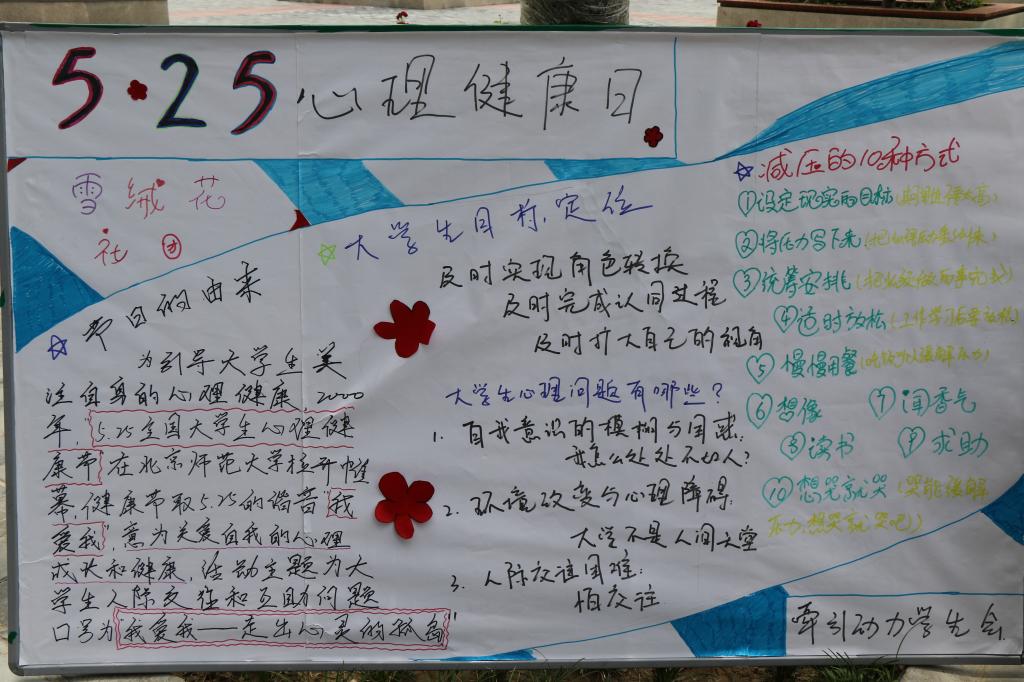 5·25心理健康日
雪绒花
社团
节日的由来
为引导大学生关
注自身的心理健康,2000
年,"5.25全国大学生心理健
康节"在北京师范大学拉开帷
幕,健康节取5.25的谐音"我
爱我",意为关爱自我的心理
成长和健康,活动主题为大
学生人际交往和互助问题
口号为"我爱我——走出心灵的孤岛"
大学生目标,定位
及时实现角色转换
及时完成认同过程
及时扩大自己的视角
大学生心理问题有哪些?
1. 自我意识的模糊与困惑:
我怎么处处不如人?
2. 环境改变与心理障碍:
大学不是人间天堂
3. 人际交往困难:
怕交往
减压的10种方式
①设定现实的目标(期望过高)
②将压力写下来
③统筹安排
④适时放松(工作学习后要放松)
⑤慢慢用餐(吃饭可以缓解压力)
⑥想像 ⑦闻香气
⑧读书 ⑨求助
⑩想哭就哭(哭能缓解
压力,想哭就哭吧)
牵引动力学生会